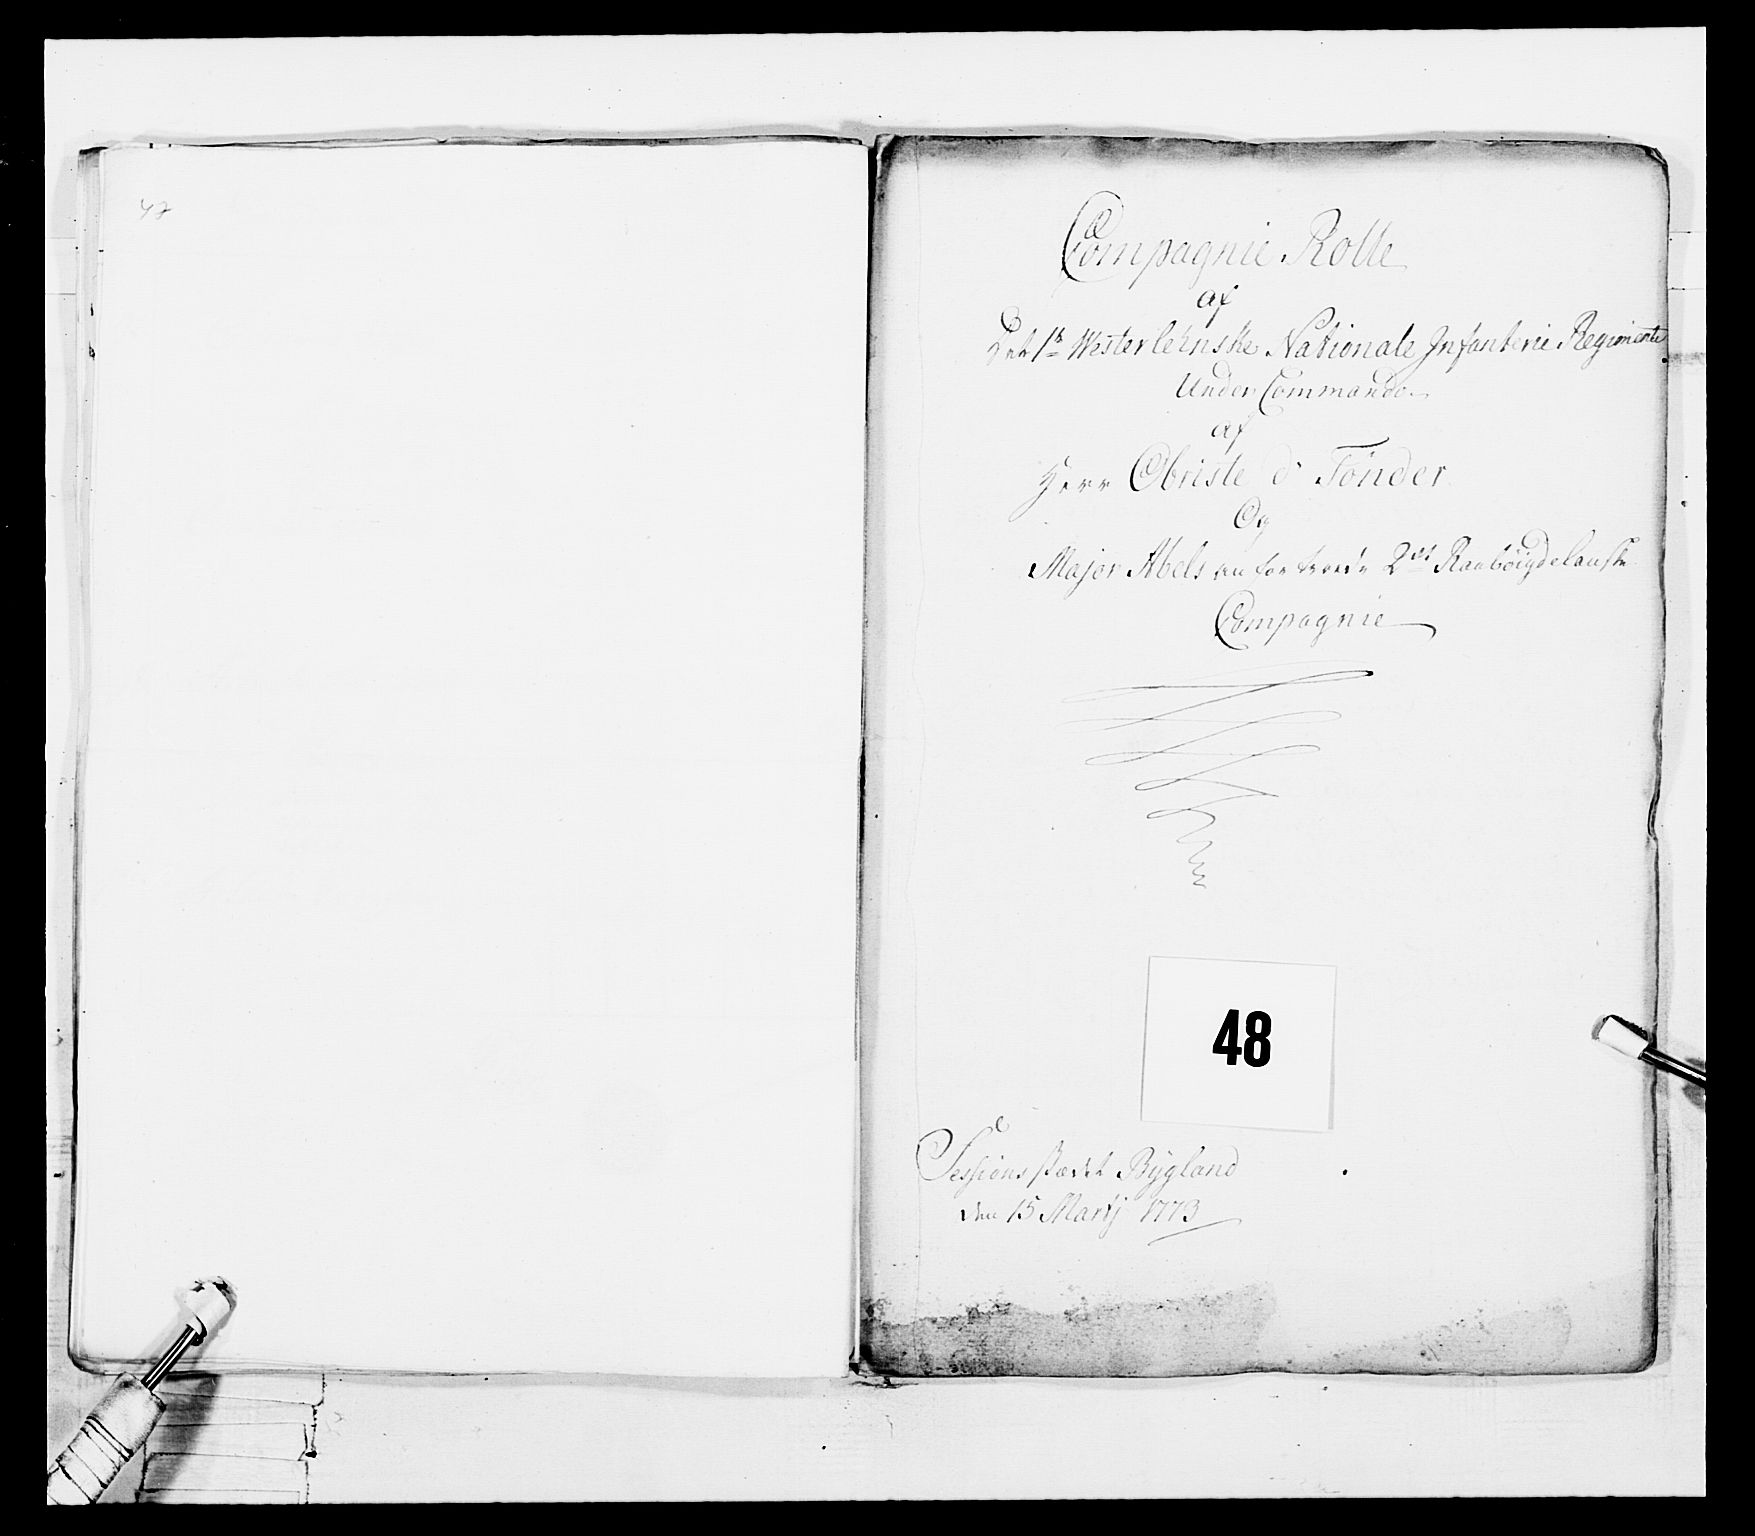 47
Compagnie Rolle
af
Det 1te Westerlehnske Nationale Infanterie Regimente
Under Commando
af
Herr Obriste d' Tönder
Og
Major Abels anfortroede 2det Raaböigdelauske
Compagnie
48
Sessions stædet Bÿgland
den 15 Martÿ 1773